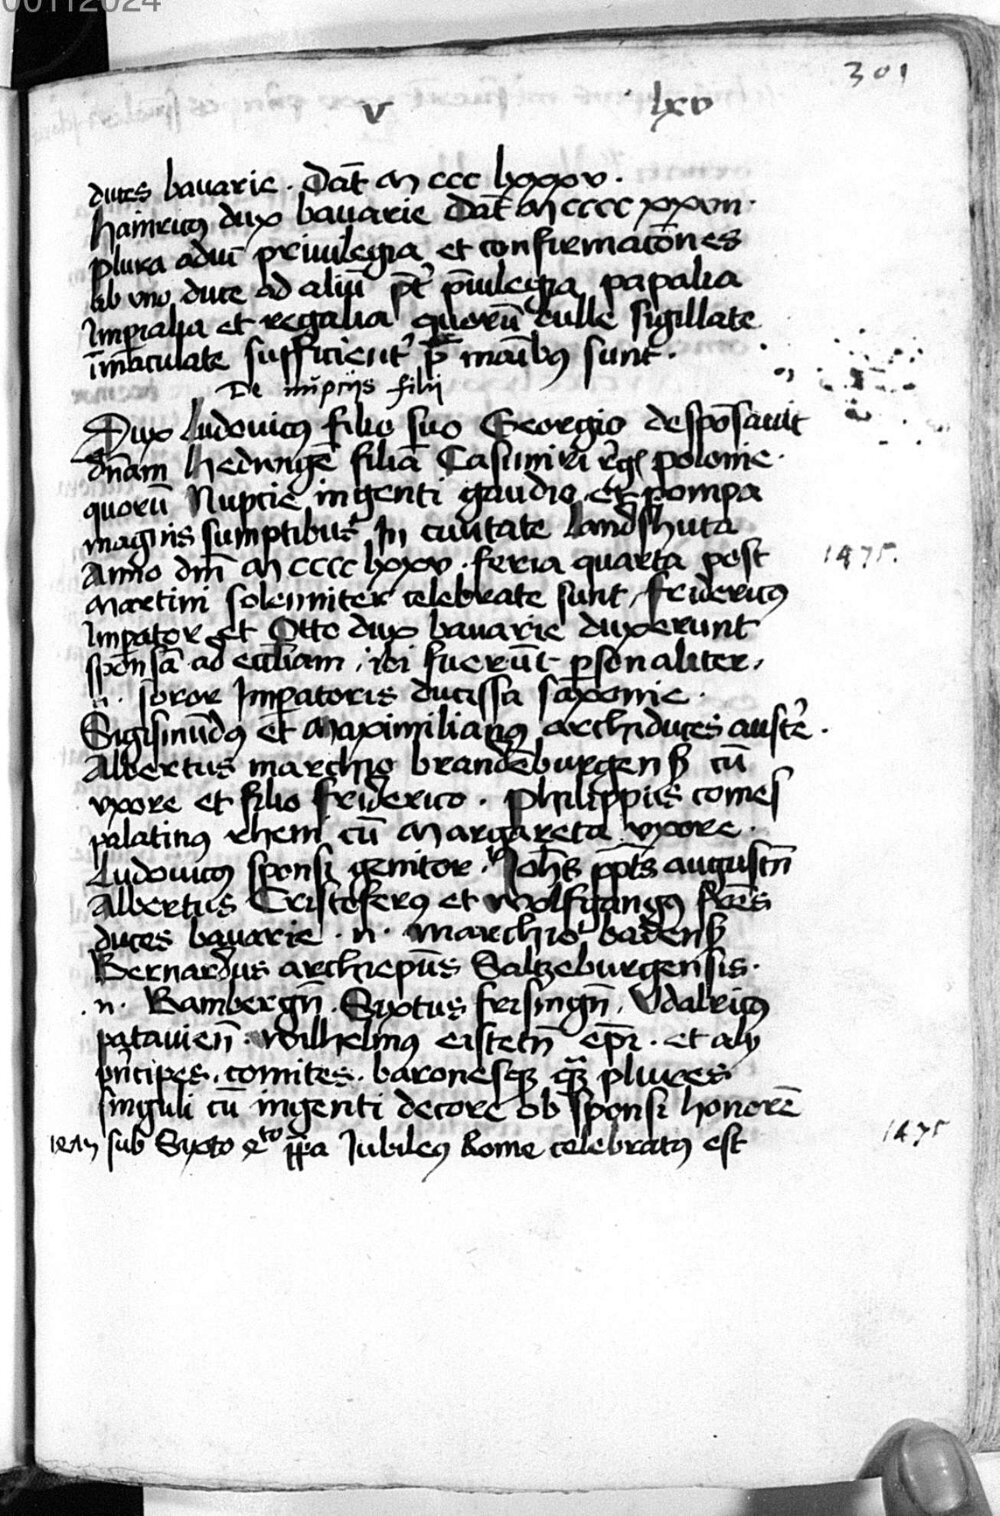 00112024
301
v lxv
duces bavarie . Dat̄ M ccc lxxxv .
Hainricꝰ dux bavarie Dat̄ M cccc xxvii .
plura adiu privilegia et confirmatōnes
ab vno duce ad aliū p̄t̓ p̄iuilegia papalia
Imperialia et regalia quorū bulle sigillate
im̄aculate sufficient̓ p̄ manibꝰ sunt .
De nupciis filij
Dux Ludovicꝰ filio suo Georgio despōsavit
dn̄am Hedvigē filiā Casimiri regꝭ polonie .
quorū Nupcie ingenti gaudio et pompa
magnis sumptibus In civitate Landshuta
Anno dm̄ M cccc lxxv . feria quarta post
1475.
Martini solemniter celebrate sunt , fridericꝰ
Impator et Otto dux bavarie duxerunt
spōnsā ad eccl̄iam , ibi fuerūt psonaliter ,
n . soror Impatoris ducissa saxonie .
Sigismūdꝰ et Maximilianꝰ archiduces austr̓e .
Albertus marchio brandēburgenß cū
vxore et filio friderico . philippus comes
palatinꝰ rheni cū Margareta vxore .
Ludovicꝰ sponsi genitor . Joh̄s pp̄ts augustn̄
Albertus Cristoferꝰ et Wolfgangꝰ fr̄es
duces bavarie . n . marchio badenß
Bernardus archiepūs Saltzeburgensis .
. n . Bambergn̄ . Sixtus frisingn̄ . Vdalricꝰ
patavien̄ . Wilhelmꝰ eistetn̄ ep̄i . et alij
pn̄cipes . comites . baronesqꝫ qᷓꝫ plures
singuli cū ingenti decore ob sponsi honorē
sub Sixto 4to pp̄a Jubileꝰ Rome celebratꝰ est
1475